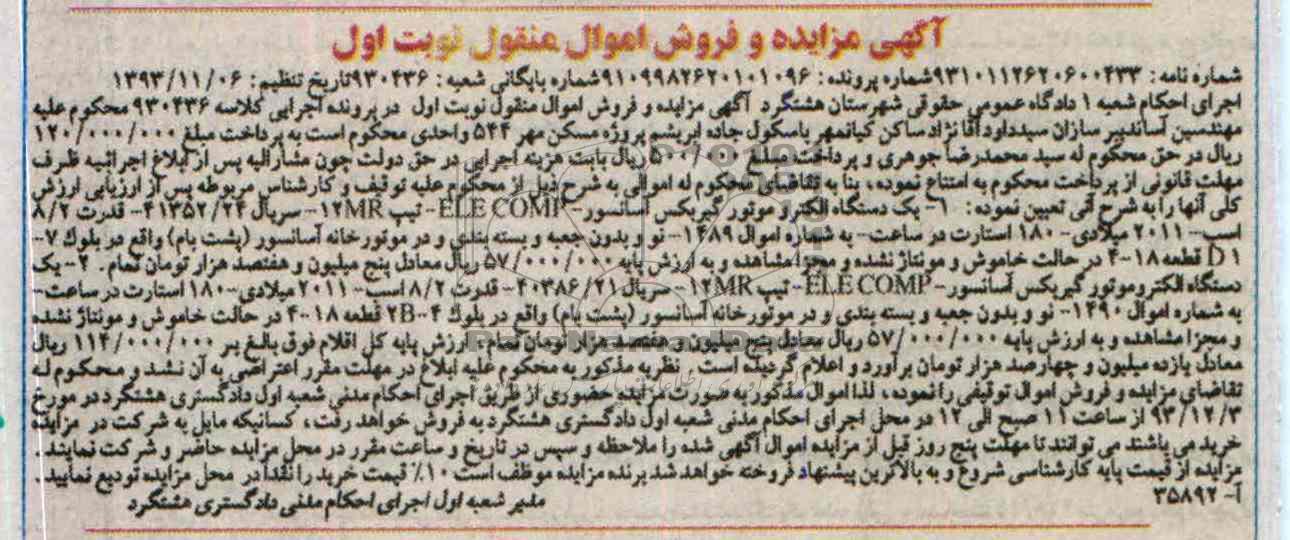 آگهی مزایده و فروش اموال منقول نوبت اول
شماره نامه: ۹۳۱۰۱۱۲۶۲۰۶۰۰۴۳۳شماره پرونده: ۹۱۰۹۹۸۲۶۲۰۱۰۱۰۹۶شماره بایگانی شعبه: ۹۳۰۴۳۶تاریخ تنظیم: ۱۳۹۳/۱۱/۰۶
اجرای احکام شعبه ۱ دادگاه عمومی حقوقی شهرستان هشتگرد آگهی مزایده و فروش اموال منقول نوبت اول در پرونده اجرایی کلاسه ۹۳۰۴۳۶ محکوم علیه
مهندسین آساندبیر سازان سیدداود آقا نژاد ساکن کیانمهر باسکول جاده ابریشم پروژه مسکن مهر ۵۴۴ واحدی محکوم است به پرداخت مبلغ ۱۲۰/۰۰۰/۰۰۰
ریال در حق محکوم له سید محمدرضا جوهری و پرداخت مبلغ ۵۰۰/۰۰۰ ریال بابت هزینه اجرایی در حق دولت چون مشارالیه پس از ابلاغ اجرائیه ظرف
مهلت قانونی از پرداخت محکوم به امتناع نموده، بنا به تقاضای محکوم له اموالی به شرح ذیل از محکوم علیه توقیف و کارشناس مربوطه پس از ارزیابی ارزش
کلی آنها را به شرح آتی تعیین نموده: ۱- یک دستگاه الکترو موتور گیربکس آسانسور- ELE COMP- تیپ ۱۲MR- سریال ۴۱۳۵۲/۲۴- قدرت ۸/۲
اسب- ۲۰۱۱ میلادی- ۱۸۰ استارت در ساعت- به شماره اموال ۱۴۸۹- نو و بدون جعبه و بسته بندی و در موتورخانه آسانسور (پشت بام) واقع در بلوك ۷-
D۱ قطعه ۱۸-۴ در حالت خاموش و مونتاژ نشده و مجزا مشاهده و به ارزش پایه ۵۷/۰۰۰/۰۰۰ ریال معادل پنج میلیون و هفتصد هزار تومان تمام. ۲- یک
دستگاه الکتروموتور گیربکس آسانسور- ELE COMP- تیپ ۱۲MR- سریال ۴۰۳۸۶/۲۱- قدرت ۸/۲ اسب- ۲۰۱۱ میلادی- ۱۸۰ استارت در ساعت-
به شماره اموال ۱۴۹۰- نو و بدون جعبه و بسته بندی و در موتورخانه آسانسور (پشت بام) واقع در بلوك ۴-۲B قطعه ۱۸-۴ در حالت خاموش و مونتاژ نشده
و مجزا مشاهده و به ارزش پایه ۵۷/۰۰۰/۰۰۰ ریال معادل پنج میلیون و هفتصد هزار تومان تمام. ارزش پایه کل اقلام فوق بالغ بر ۱۱۴/۰۰۰/۰۰۰ ریال
معادل یازده میلیون و چهارصد هزار تومان برآورد و اعلام گردیده است. نظریه مذکور به محکوم علیه ابلاغ در مهلت مقرر اعتراضی به آن نشد و محکوم له
تقاضای مزایده و فروش اموال توقیفی را نموده، لذا اموال مذکور به صورت مزایده حضوری از طریق اجرای احکام مدنی شعبه اول دادگستری هشتگرد در مورخ
۹۳/۱۲/۳ از ساعت ۱۱ صبح الی ۱۲ در محل اجرای احکام مدنی شعبه اول دادگستری هشتگرد به فروش خواهد رفت، کسانیکه مایل به شرکت در مزایده
خرید می باشند می توانند تا مهلت پنج روز قبل از مزایده اموال آگهی شده را ملاحظه و سپس در تاریخ و ساعت مقرر در محل مزایده حاضر و شرکت نمایند.
مزایده از قیمت پایه کارشناسی شروع و به بالاترین پیشنهاد فروخته خواهد شد برنده مزایده موظف است ۱۰٪ قیمت خرید را نقداً در محل مزایده تودیع نمایید.
آ- ۳۵۸۹۲ مدیر شعبه اول اجرای احکام مدنی دادگستری هشتگرد